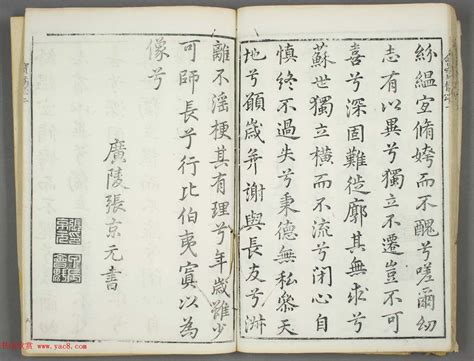 紛縕宜脩姱而不醜兮嗟爾幼
志有以異兮獨立不遷豈不可
喜兮深固難徙廓其無求兮
蘇世獨立橫而不流兮閉心自
慎終不過失兮秉德無私參天
地兮願歲并謝與長友兮淋
離不淫梗其有理兮年歲雖少
可師長兮行比伯夷寘以為
像兮
廣陵張京元書
www.yac8.com